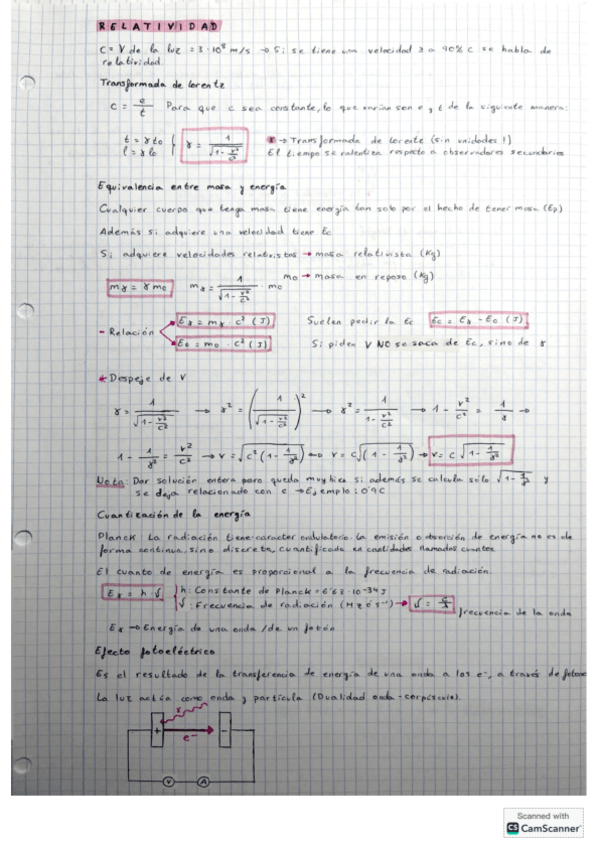 RELATIVIDAD
C = V de la luz = 3·10⁸ m/s → Si se tiene una velocidad ≥ a 90% c se habla de
relatividad.
Transformada de Lorentz
C = e/t Para que c sea constante, lo que varían son e y t de la siguiente manera:
t = γ t₀ } γ = 1/√(1 - v²/c²) γ → Transformada de Lorente (sin unidades!)
l = γ l₀ El tiempo se ralentiza respecto a observadores secundarios
Equivalencia entre masa y energía
Cualquier cuerpo que tenga masa tiene energía tan solo por el hecho de tener masa (Ep)
Además si adquiere una velocidad tiene Ec
Si adquiere velocidades relativistas → masa relativista (Kg)
mγ = γ m₀ mγ = 1/√(1 - v²/c²) · m₀ m₀ → masa en reposo (Kg)
- Relación Eγ = mγ · c² (J) Suelen pedir la Ec Ec = Eγ - E₀ (J)
E₀ = m₀ · c² (J) Si piden V NO se saca de Ec, sino de γ
* Despeje de V
γ = 1/√(1 - v²/c²) → γ² = (1/√(1 - v²/c²))² → γ² = 1/(1 - v²/c²) → 1 - v²/c² = 1/γ² →
1 - 1/γ² = v²/c² → v = √(c²(1 - 1/γ²)) → v = c√(1 - 1/γ²) → v = c√(1 - 1/γ²)
Nota: Dar solución entera pero queda muy tica si además se calcula sólo √(1 - 1/γ²) y
se deja relacionado con c → Ejemplo: 0'9C
Cuantización de la energía
Planck La radiación tiene caracter ondulatorio. La emisión o absorción de energía no es de
forma continua, sino discreta, cuantificada en cantidades llamadas cuantos
El cuanto de energía es proporcional a la frecuencia de radiación.
Eγ = h · f { h: Constante de Planck = 6'63·10⁻³⁴ J
f: Frecuencia de radiación (Hz ó s⁻¹) → f = c/λ frecuencia de la onda
Eγ → Energía de una onda / de un fotón
Efecto fotoeléctrico
Es el resultado de la transferencia de energía de una onda a los e⁻, a través de fotones
La luz actúa como onda y partícula (Dualidad onda-corpúsculo).
γ
+ e⁻ -
V A
Scanned with
CS CamScanner